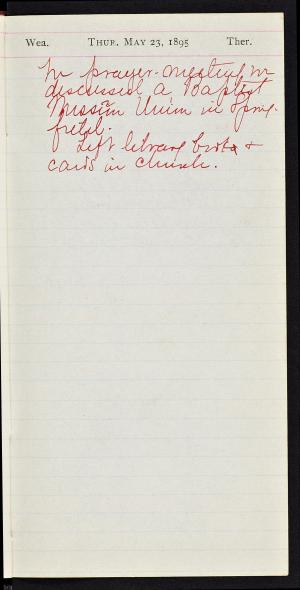 Wea. THUR. MAY 23, 1895 Ther.
In prayer-meeting we
discussed a Baptist
Mission Union in Spring-
field.
Left library books &
cards in church.